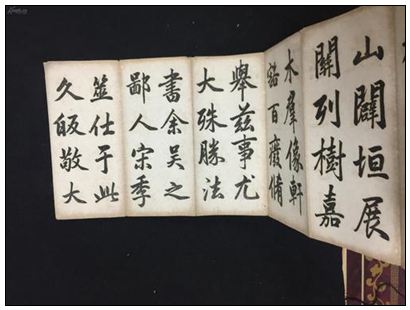 山闢垣展
關列樹嘉
木羣像軒
豁百廢脩
舉茲事尤
大殊勝法
書余吴之
鄙人宋季
筮仕于此
久皈敬大